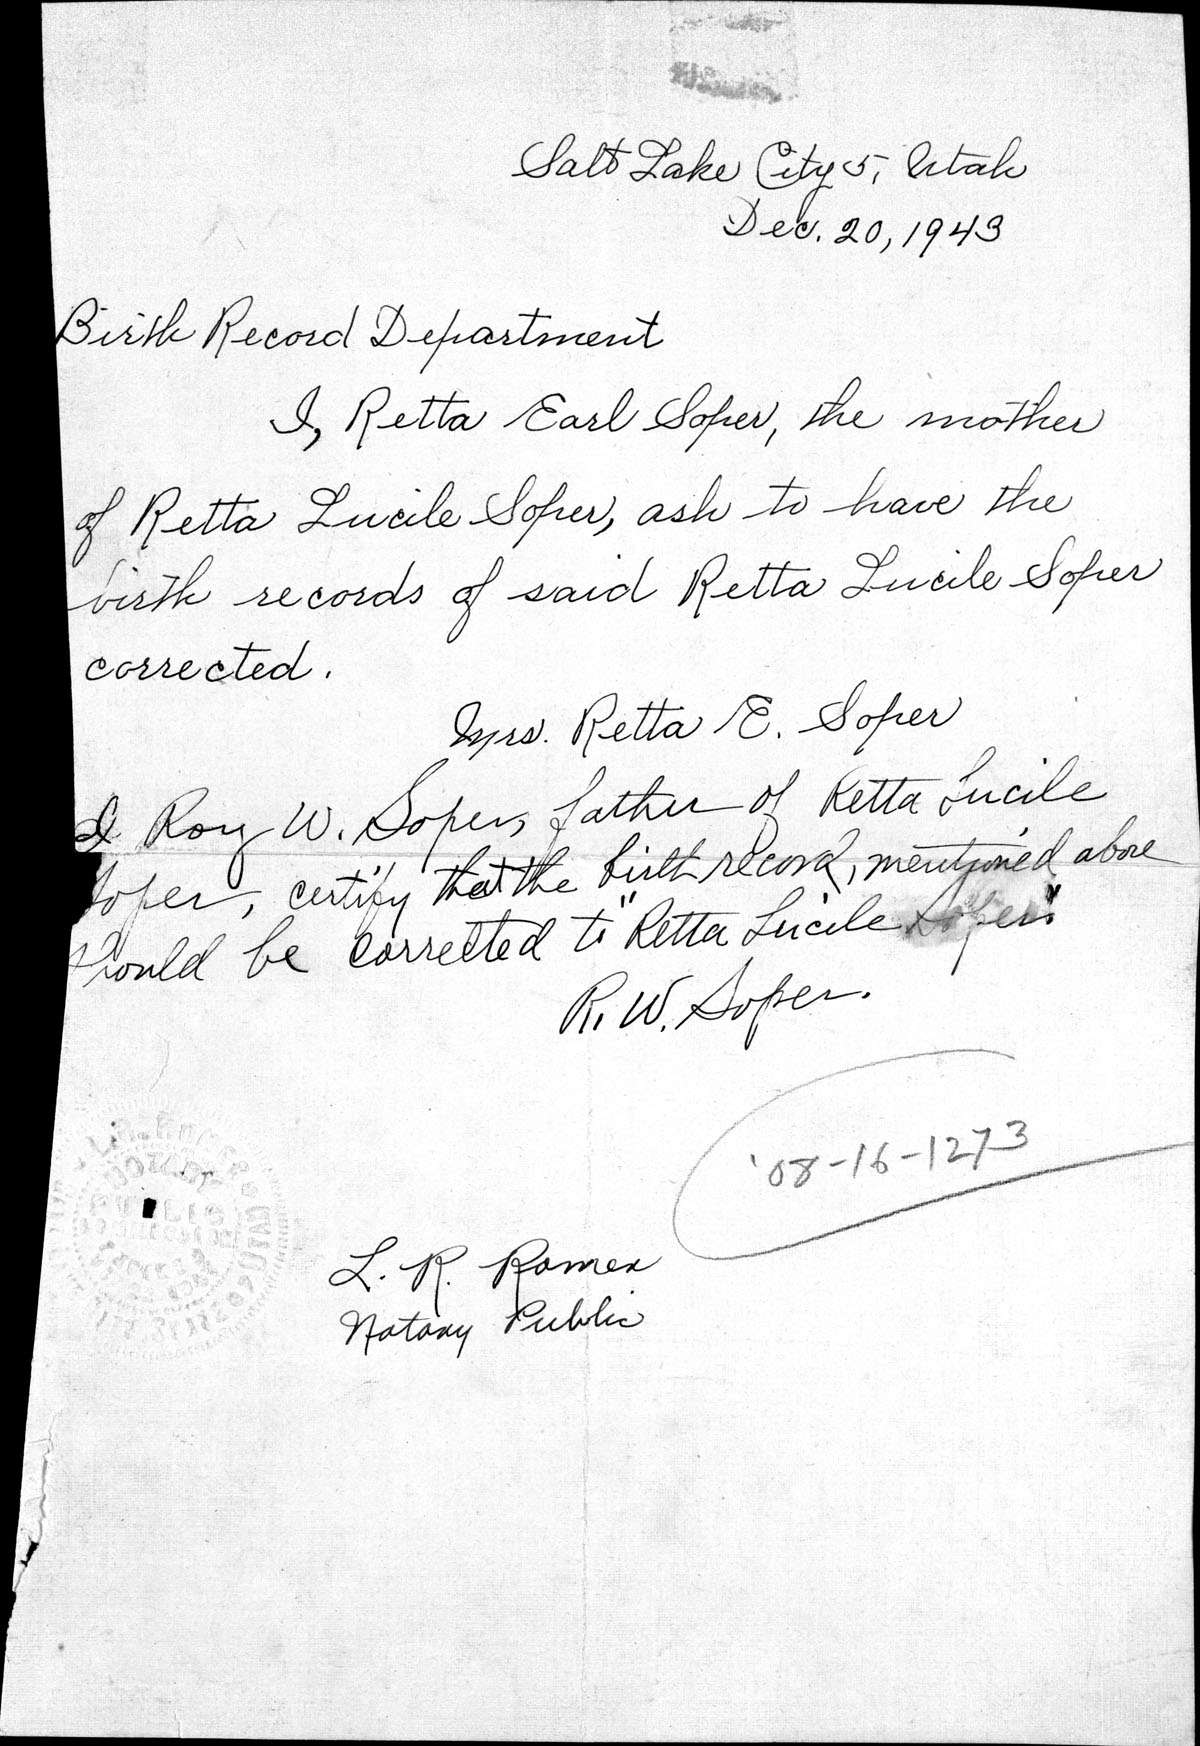 Salt Lake City 5, Utah
Dec. 20, 1943
Birth Record Department
I, Retta Earl Soper, the mother
of Retta Lucile Soper, ask to have the
birth records of said Retta Lucile Soper
corrected.
Mrs. Retta E. Soper
I Roy W. Soper, father of Retta Lucile
Soper, certify that the birth record, mentioned above
should be corrected to "Retta Lucile Soper."
R. W. Soper.
'08-16-1273
L. R. Romer
Notary Public